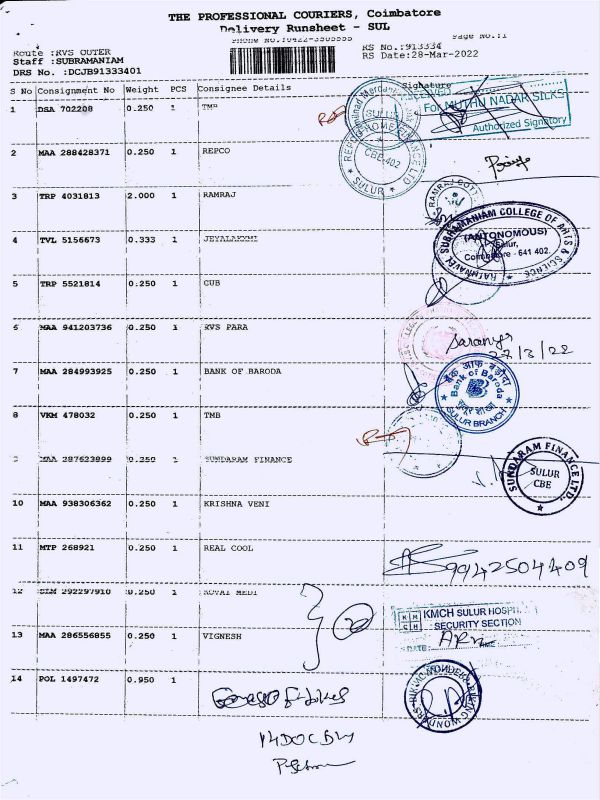 THE PROFESSIONAL COURIERS, Coimbatore
Delivery Runsheet - SUL
Page No.:1
Route :RVS OUTER
RS No.:913334
Staff :SUBRAMANIAM
RS Date:28-Mar-2022
DRS No. :DCJB91333401
S No Consignment No Weight PCS Consignee Details Signature
1 DSA 702208 0.250 1 TMB
For MUTHU NADAR SILKS
Authorized Signatory
SULUR
CBE-402
SULUR
2 MAA 288428371 0.250 1 REPCO
3 TRP 4031813 2.000 1 RAMRAJ
4 TVL 5156673 0.333 1 JEYALAKSMI
RATHNAVEL SUBRAMANIAM COLLEGE OF ARTS & SCIENCE
(AUTONOMOUS)
Sulur,
Coimbatore - 641 402.
5 TRP 5521814 0.250 1 CUB
6 MAA 941203736 0.250 1 RVS PARA
Saranya
27/3/22
7 MAA 284993925 0.250 1 BANK OF BARODA
बैंक ऑफ़ बड़ौदा
Bank of Baroda
SULUR BRANCH
8 VKM 478032 0.250 1 TMB
9 MAA 287623899 0.250 1 SUNDARAM FINANCE
SUNDARAM FINANCE LTD.,
SULUR
CBE
10 MAA 938306362 0.250 1 KRISHNA VENI
11 MTP 268921 0.250 1 REAL COOL
9942504409
12 SLM 292297910 0.250 1 ROYAL MEDI
KMCH SULUR HOSPITAL
SECURITY SECTION
DATE: TIME
13 MAA 286556855 0.250 1 VIGNESH
14 POL 1497472 0.950 1